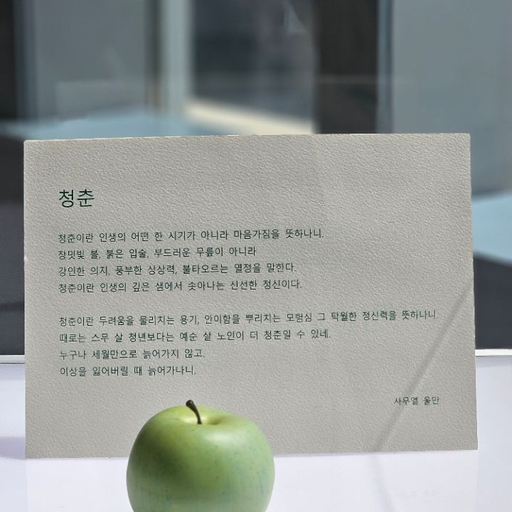 청춘
청춘이란 인생의 어떤 한 시기가 아니라 마음가짐을 뜻하나니.
장밋빛 볼, 붉은 입술, 부드러운 무릎이 아니라
강인한 의지, 풍부한 상상력, 불타오르는 열정을 말한다.
청춘이란 인생의 깊은 샘에서 솟아나는 신선한 정신이다.
청춘이란 두려움을 물리치는 용기, 안이함을 뿌리치는 모험심 그 탁월한 정신력을 뜻하나니
때로는 스무 살 청년보다는 예순 살 노인이 더 청춘일 수 있네.
누구나 세월만으로 늙어가지 않고.
이상을 잃어버릴 때 늙어가나니.
사무엘 울만